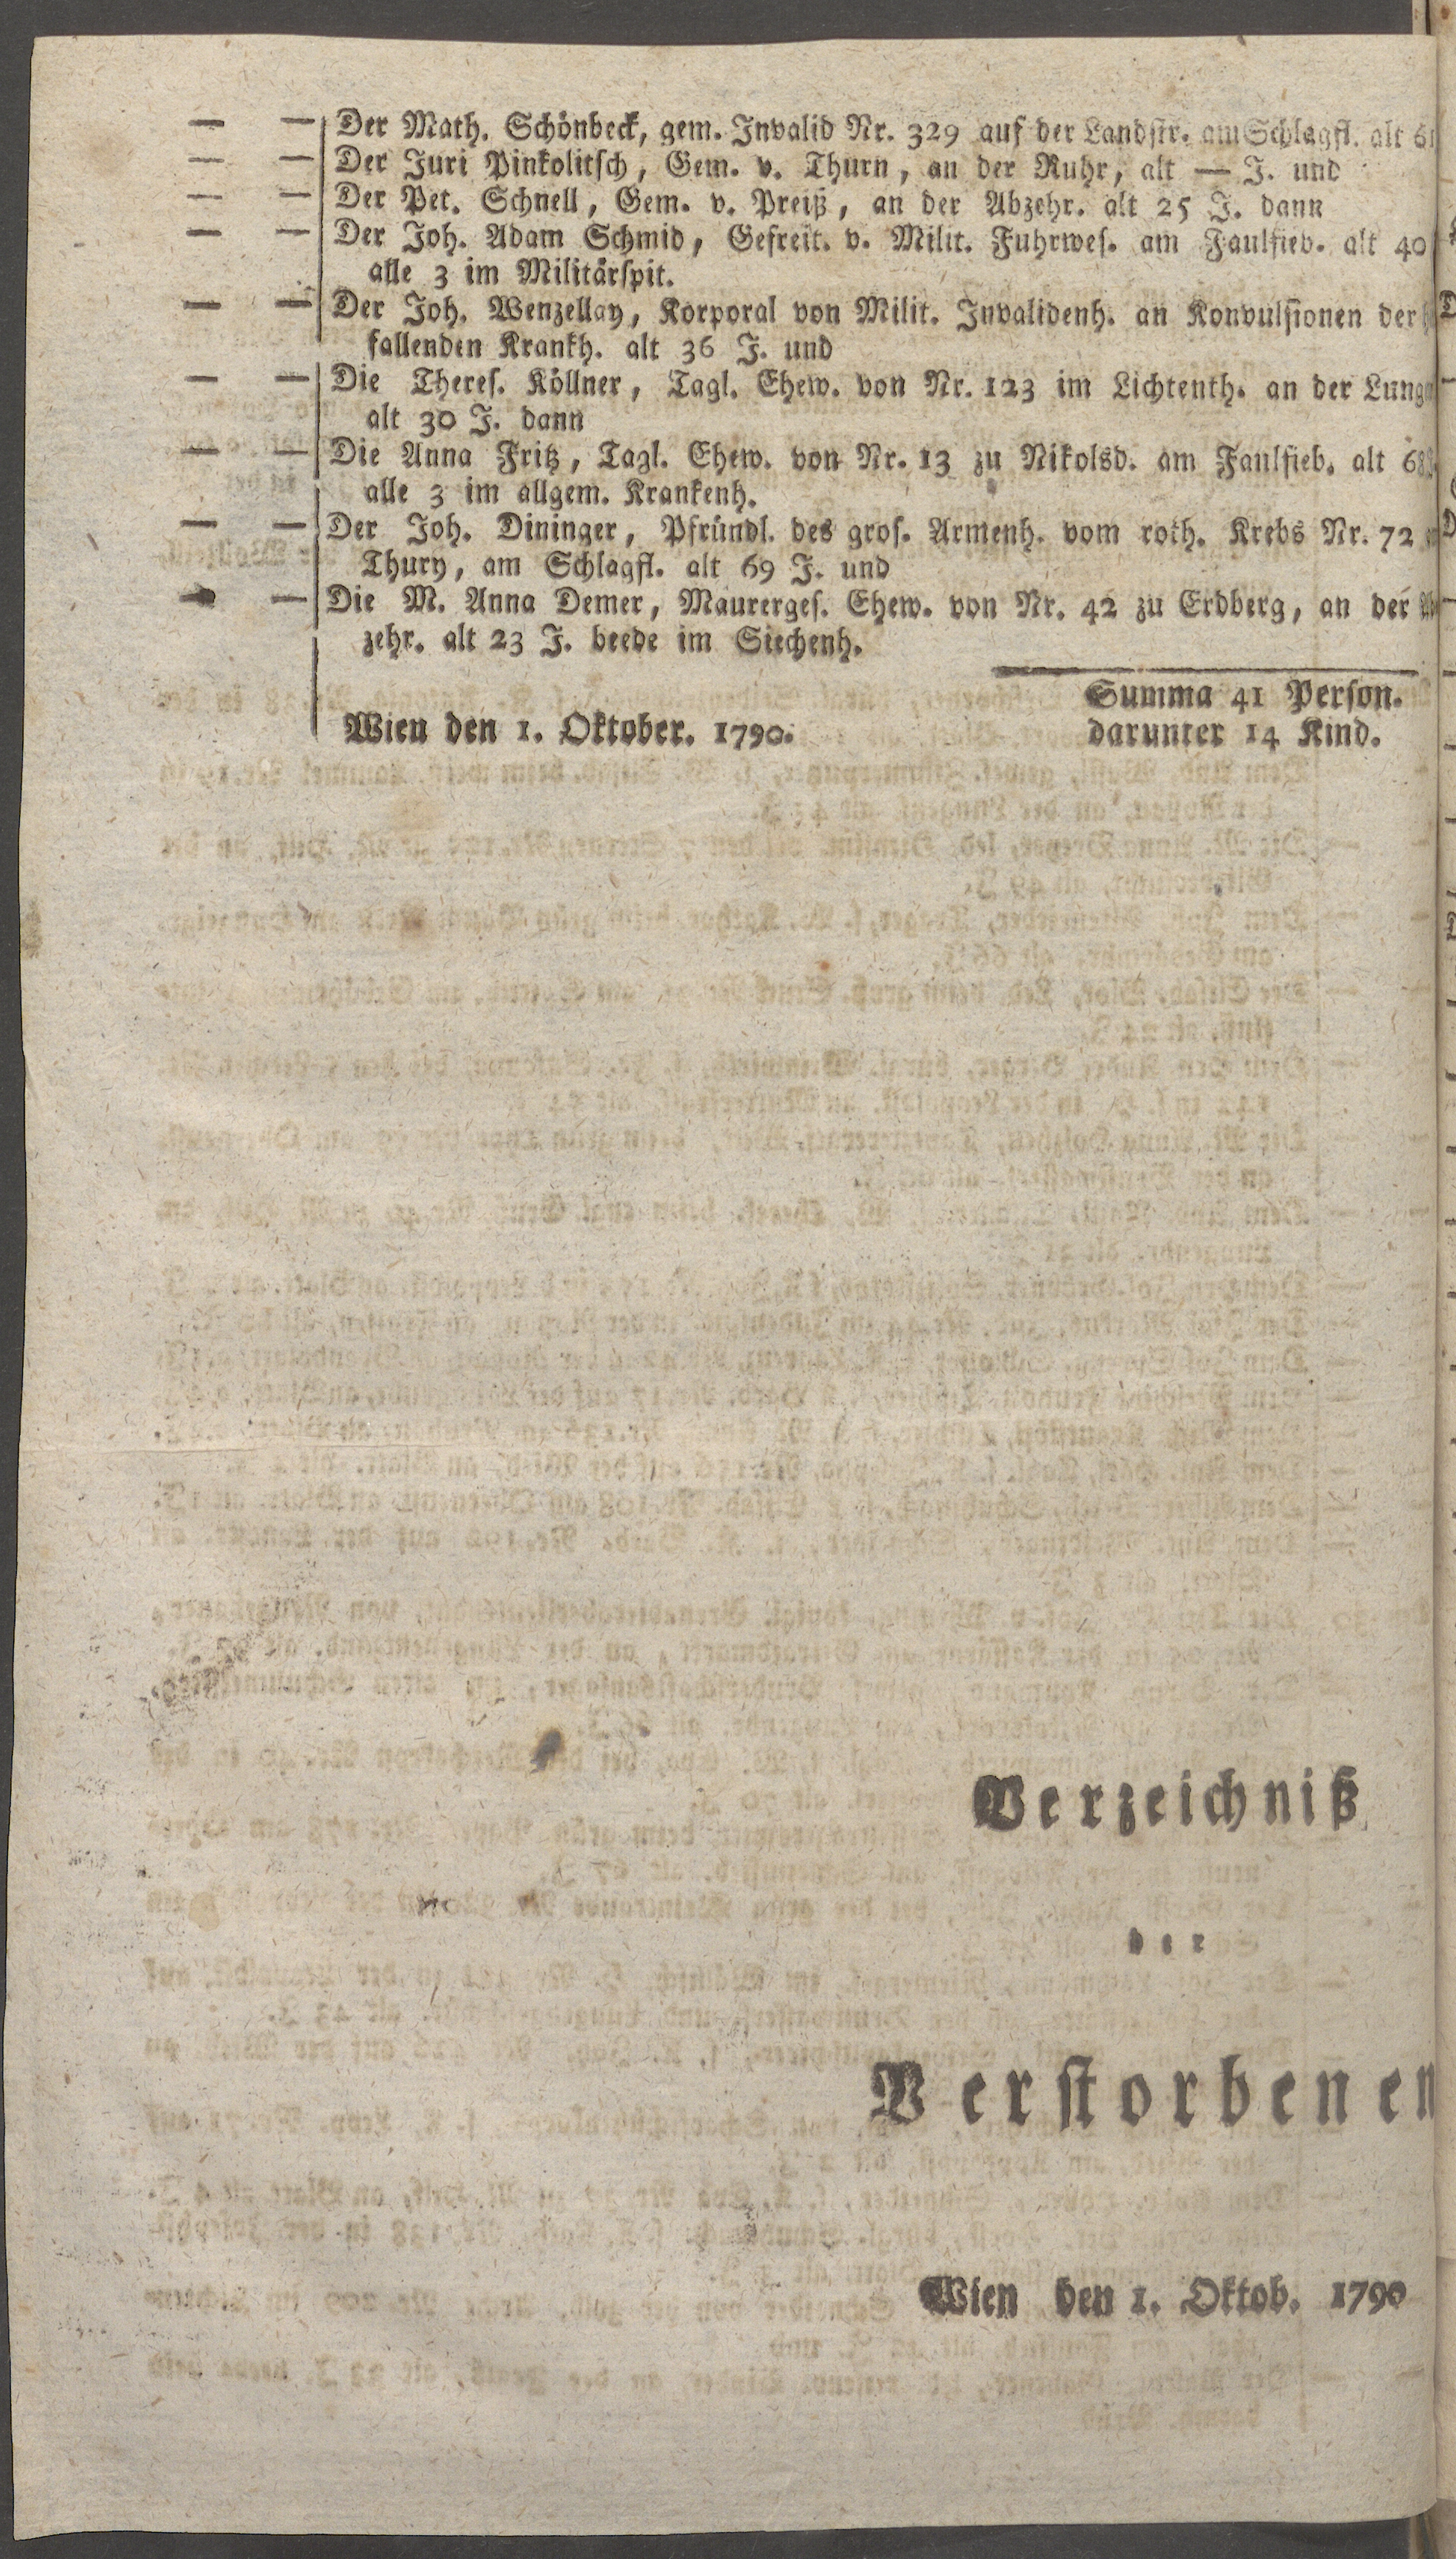 — — Der Math. Schönbeck, gem. Invalid Nr. 329 auf der Landstr. am Schlagfl. alt
— — Der Juri Pinkolitsch, Gem. v. Thurn, an der Ruhr, alt — J. und
— — Der Pet. Schnell, Gem. v. Preiß, an der Abzehr. alt 25 J. dann
— — Der Joh. Adam Schmid, Gefreit. v. Milit. Fuhrwes. am Faulfieb. alt 40
alle 3 im Militärspit.
— — Der Joh. Wenzellay, Korporal von Milit. Invalidenh. an Konvulsionen der
fallenden Krankh. alt 36 J. und
— — Die Theres. Köllner, Tagl. Ehew. von Nr. 123 im Lichtenth. an der Lung
alt 30 J. dann
— — Die Anna Fritz, Tagl. Ehew. von Nr. 13 zu Nikolsd. am Faulfieb. alt
alle 3 im allgem. Krankenh.
— — Der Joh. Dininger, Pfründl. des gros. Armenh. vom roth. Krebs Nr. 72
Thury, am Schlagfl. alt 69 J. und
— — Die M. Anna Demer, Maurerges. Ehew. von Nr. 42 zu Erdberg, an der
zehr. alt 23 J. beede im Siechenh.
Summa 41 Person.
Wien den 1. Oktober. 1790. darunter 14 Kind.
Verzeichniß
der
Verstorbenen
Wien den 1. Oktob. 1790